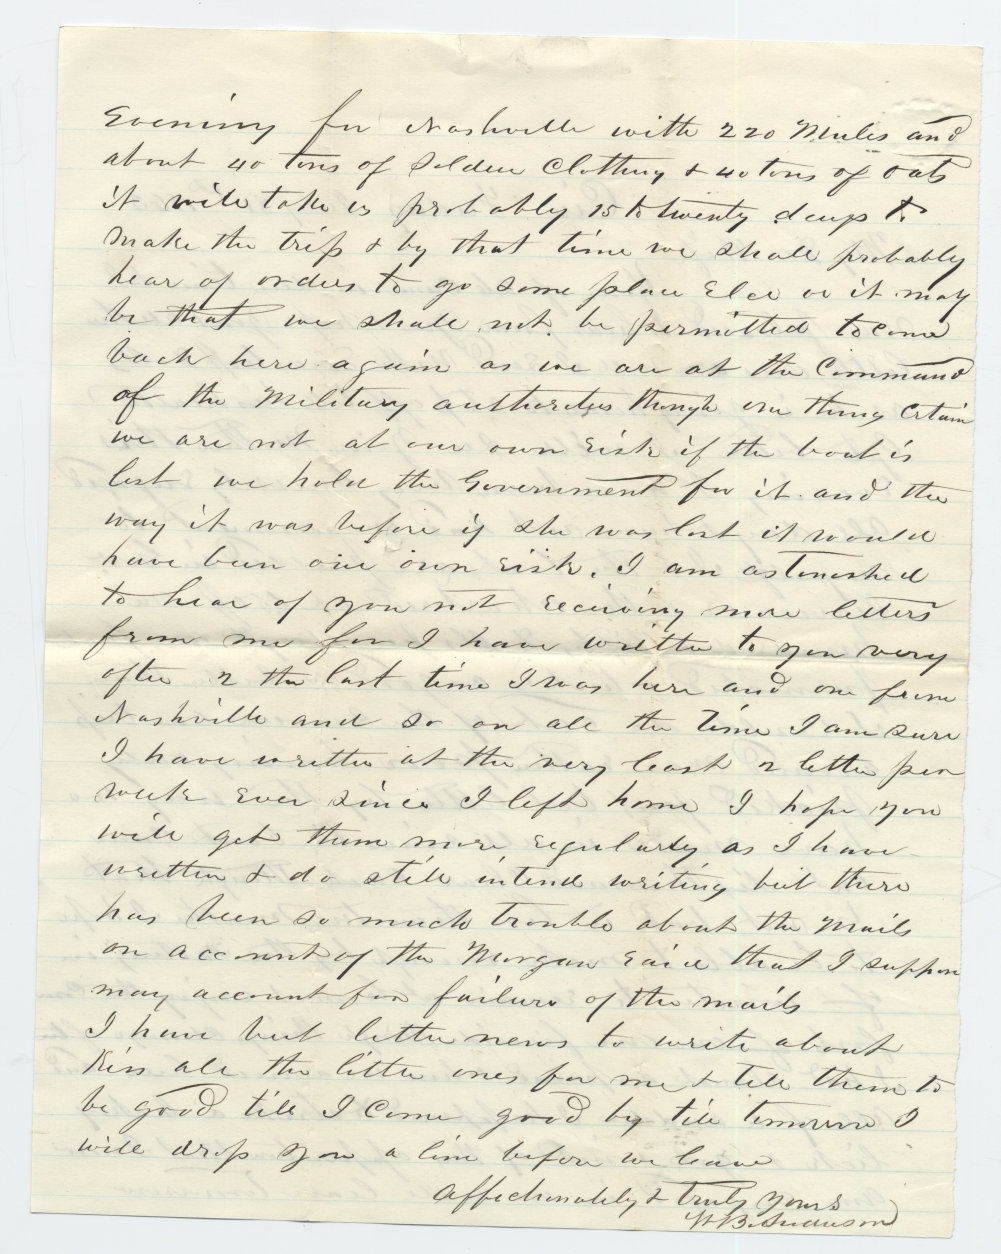 Evening for Nashville with 220 Mules and
about 40 tons of Soldier Clothing & 40 tons of oats
it will take us probably 15 to twenty days to
make the trip & by that time we shall probably
hear of orders to go some place Elce or it may
be that we shall not be permitted to come
back here again as we are at the Command
of the Military authoritys though one thing certain
we are not at our own risk if the boat is
lost we hold the Government for it and the
way it was before if she was lost it would
have been our own risk. I am astonished
to hear of you not receiving more letters
from me for I have written to you very
often 2 the last time I was here and one from
Nashville and so on all the time I am sure
I have written at the very least 2 letter per
week Ever since I left home I hope you
will get them more regularly as I have
written & do still intend writing but there
has been so much trouble about the Mails
on account of the Morgan raid that I suppose
may account for failure of the mails
I have but little news to write about
Kiss all the little ones for me & tell them to
be good till I Come good by till tomorrow I
will drop you a line before we leave
Affectionately & truly yours
W B Anderson